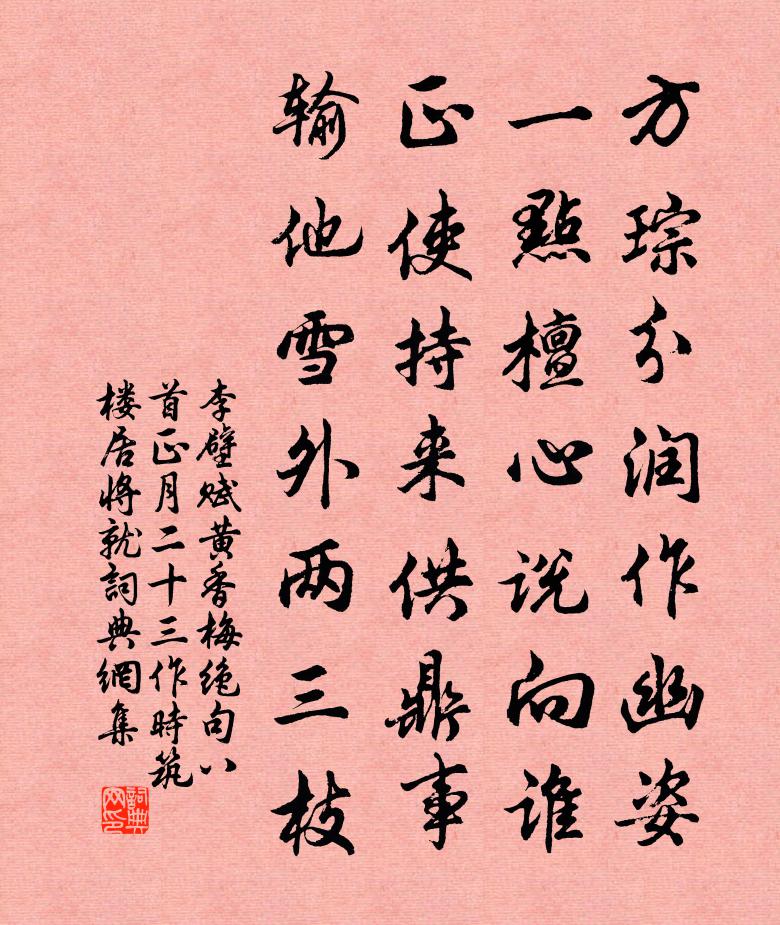 方琮分润作幽姿
一點檀心说向谁
正使持来供鼎事
输他雪外两三枝
李壁赋黄香梅绝句八
首正月二十三作時筑
楼居将就詞典網集
詞典
网印